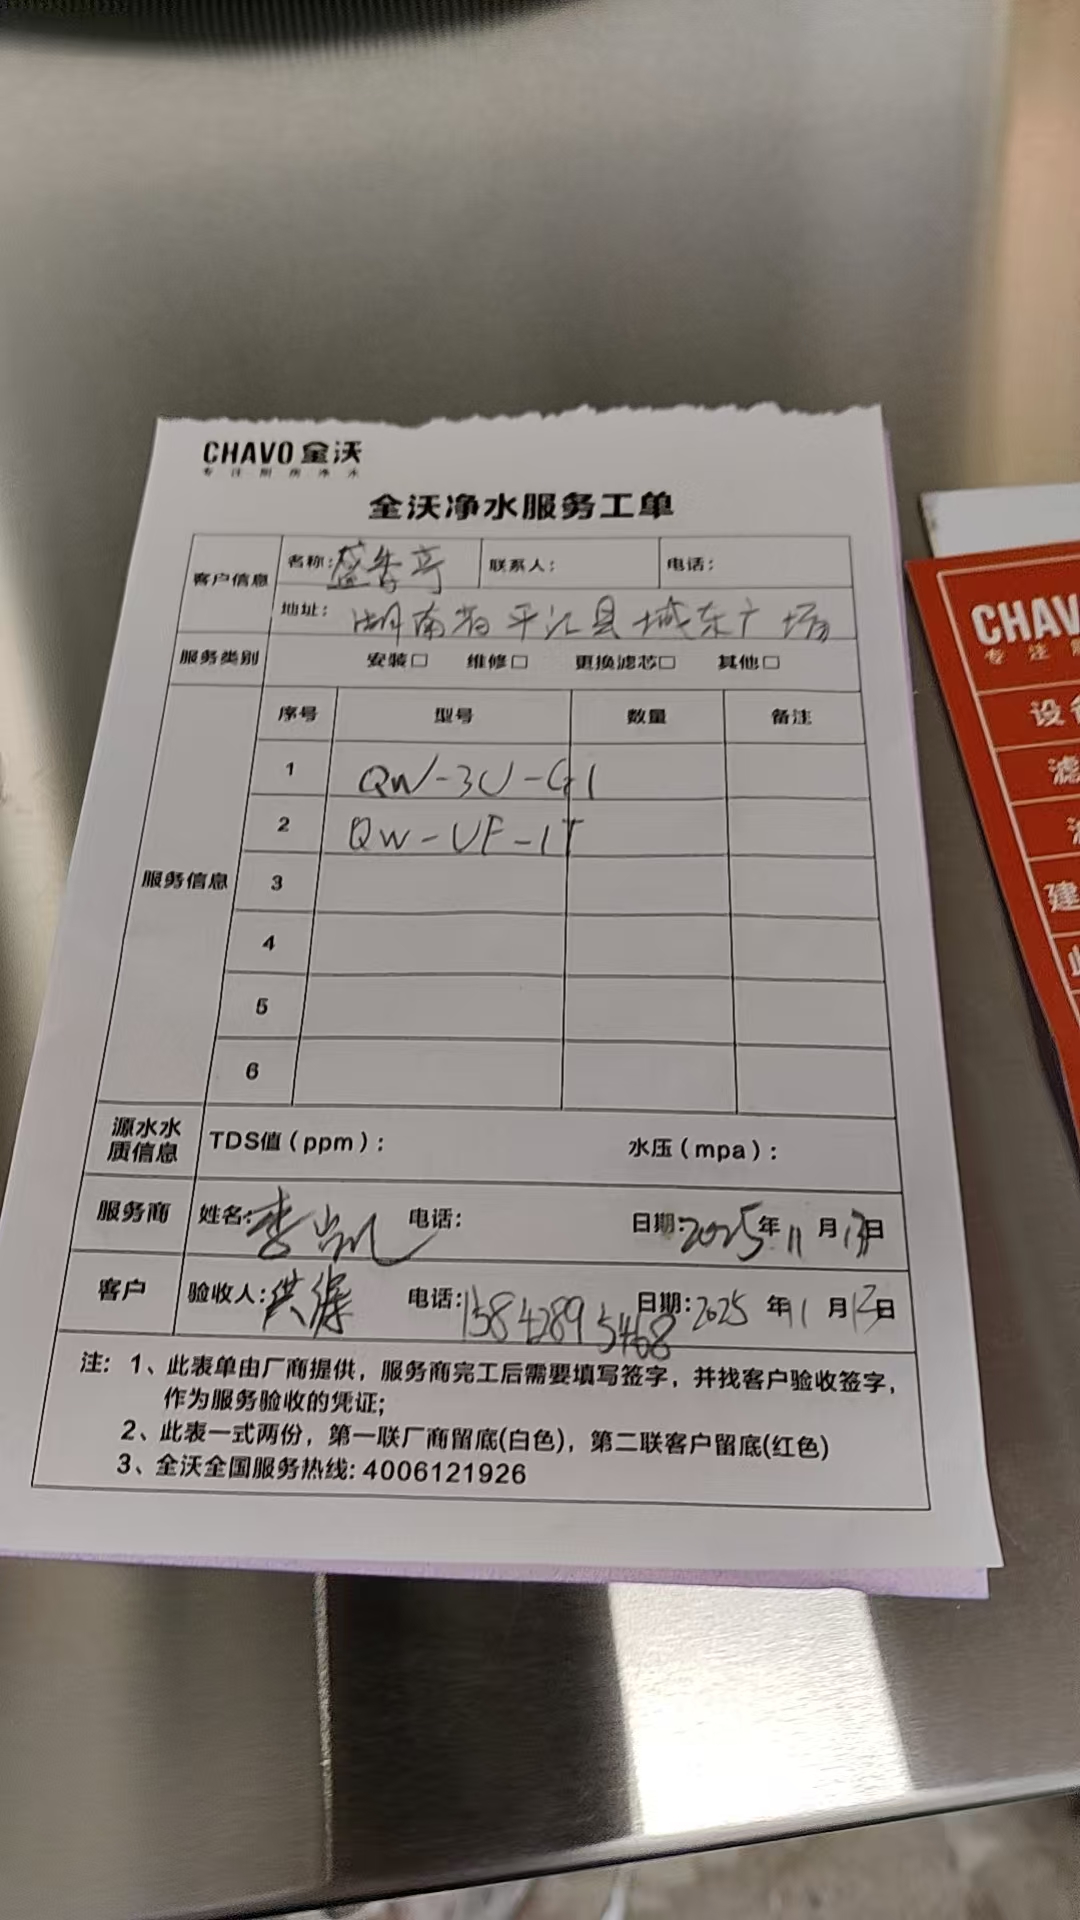 CHAVO 全沃
专注厨房净水
全沃净水服务工单
客户信息
名称:盛香亭
联系人:
电话:
地址: 湖南省平江县城东广场
服务类别
安装□ 维修□ 更换滤芯□ 其他□
服务信息
序号 型号 数量 备注
1 QW-3U-G1
2 QW-UF-1T
3
4
5
6
源水水
质信息
TDS值(ppm):
水压(mpa):
服务商
姓名:李
电话:
日期:2025年11月13日
客户
验收人:洪
电话:15842895468
日期:2025年11月12日
注: 1、此表单由厂商提供,服务商完工后需要填写签字,并找客户验收签字,
作为服务验收的凭证;
2、此表一式两份,第一联厂商留底(白色),第二联客户留底(红色)
3、全沃全国服务热线:4006121926
CHAV
专注
设
滤
建